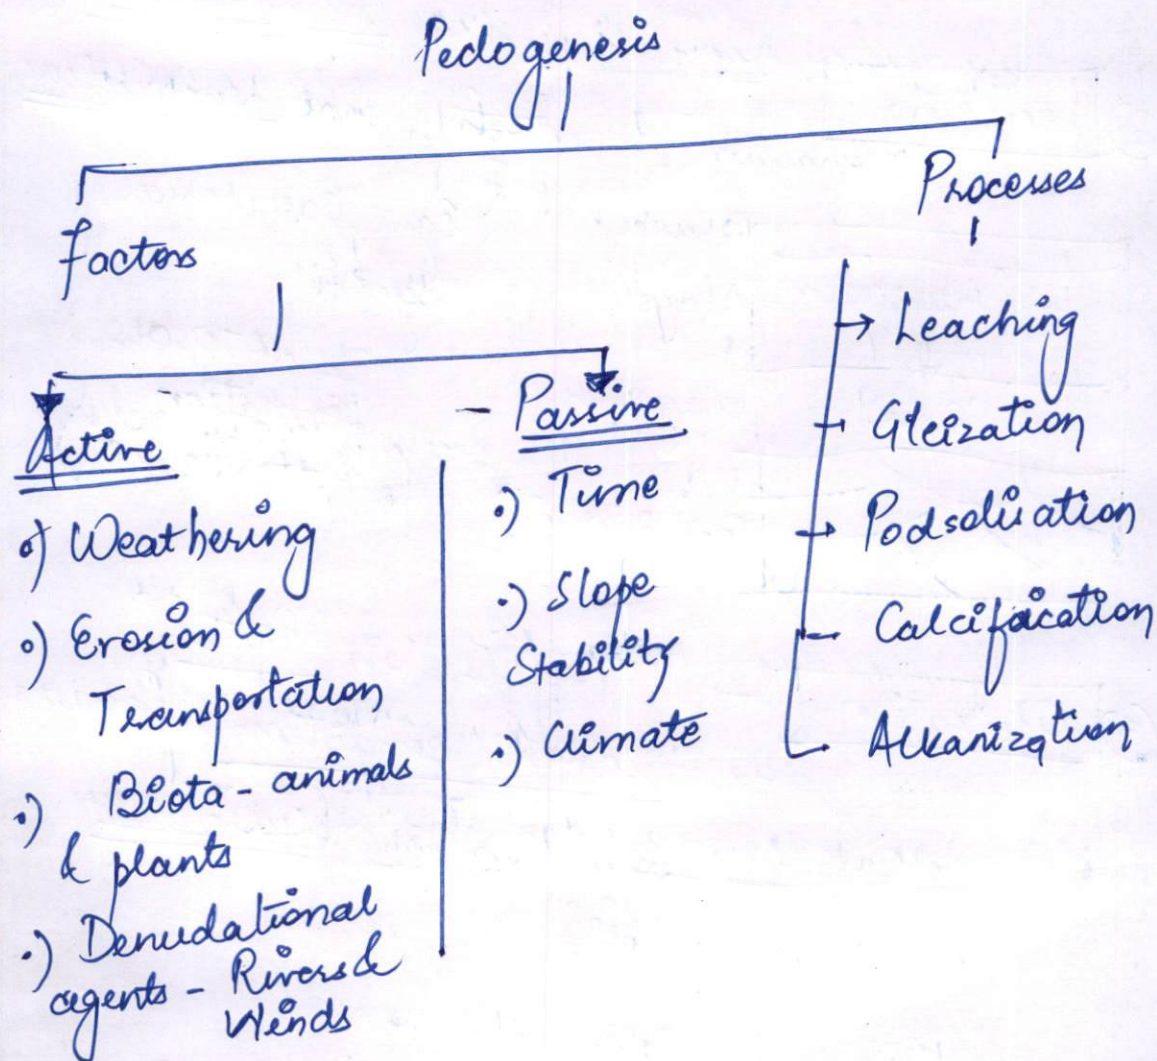 Pedogenesis
Factors
Processes
Active
•) Weathering
•) Erosion &
Transportation
•) Biota - animals
& plants
•) Denudational
agents - Rivers &
Winds
- Passive
•) Time
•) Slope
Stability
•) Climate
→ Leaching
- Gleization
→ Podsolisation
- Calcification
- Alkanization